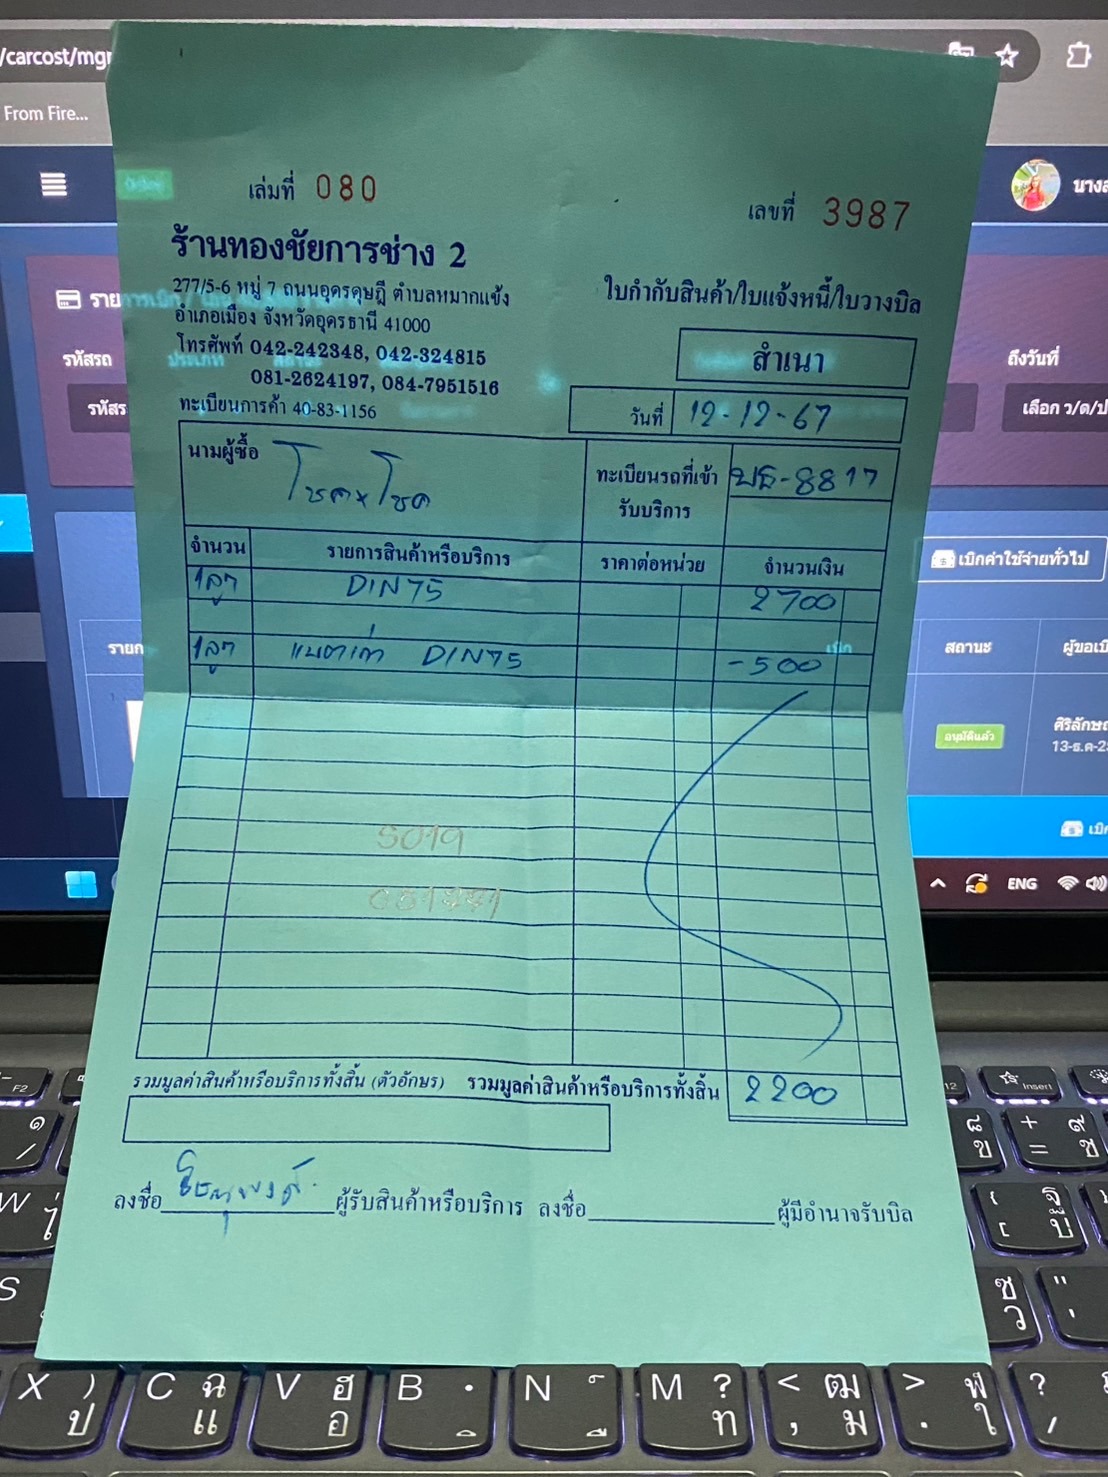 /carcost/mgr
From Fire...
นางส
เล่มที่ 080
เลขที่ 3987
ร้านทองชัยการช่าง 2
277/5-6 หมู่ 7 ถนนอุดรดุษฎี ตำบลหมากแข้ง
อำเภอเมือง จังหวัดอุดรธานี 41000
โทรศัพท์ 042-242348, 042-324815
081-2624197, 084-7951516
ทะเบียนการค้า 40-83-1156
ใบกำกับสินค้า/ใบแจ้งหนี้/ใบวางบิล
สำเนา
วันที่ 12-12-67
ราย
รหัสรถ
รหัสร
ถึงวันที่
เลือก ว/ด/ป
นามผู้ซื้อ โชคxโชค
ทะเบียนรถที่เข้ารับบริการ
8817
จำนวน รายการสินค้าหรือบริการ ราคาต่อหน่วย จำนวนเงิน
1ลูก DIN75 2700
1ลูก แบตเก่า DIN75 -500
เบิกค่าใช้จ่ายทั่วไป
รายก
สถานะ
ผู้ขอเบิ
อนุมัติแล้ว
ศิริลักษณ
13-ธ.ค-2
5019
ENG
รวมมูลค่าสินค้าหรือบริการทั้งสิ้น (ตัวอักษร) รวมมูลค่าสินค้าหรือบริการทั้งสิ้น 2200
ลงชื่อ ผู้รับสินค้าหรือบริการ ลงชื่อ ผู้มีอำนาจรับบิล
F2
12
Insert
X ) ป
C ฉ แ
V ฮ อ
B
N
M ? ท
< ฒ , ม
> ฬ . ใ
? /